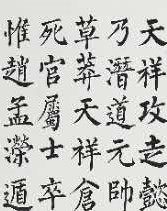 天祥攻走懿
乃潛道元帥
草莽天祥倉
死官屬士卒
惟趙孟濚遁